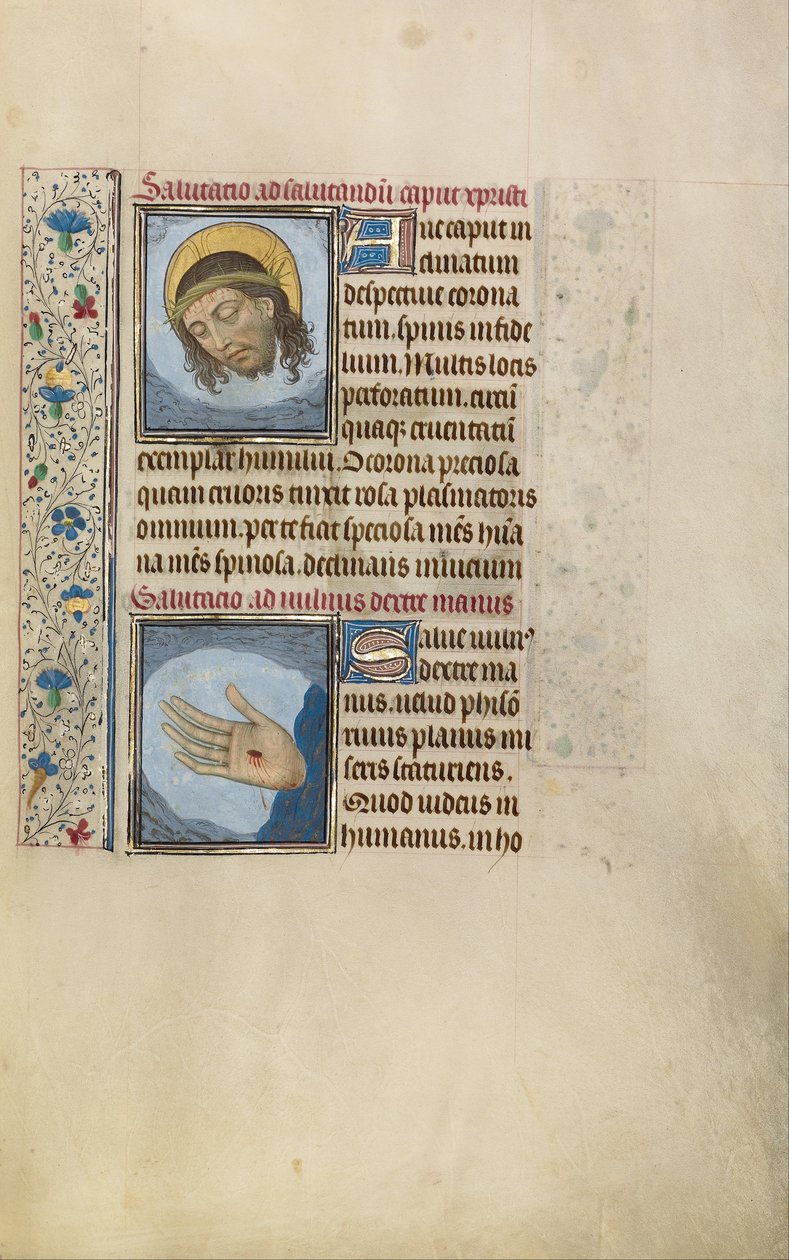 Salutatio ad salutandū caput xpristi
Aue caput in
clinatum
despectiue corona
tum. spinis infide
lium. Multis locis
perforatum. circū
quaqꝫ cruentatū
exemplar humiliū. O corona preciosa
quam cruoris tinxit rosa plasmatoris
omnium. per te fiat speciosa mēs hūa
na mēs spinosa. declinans inicium
Salutacio ad uulnus dextre manus
Salue uulnꝰ
dextre ma
nus. uelud phisō
riuus planus mi
seris scaturiens.
Quod uideus in
humanus. in ho